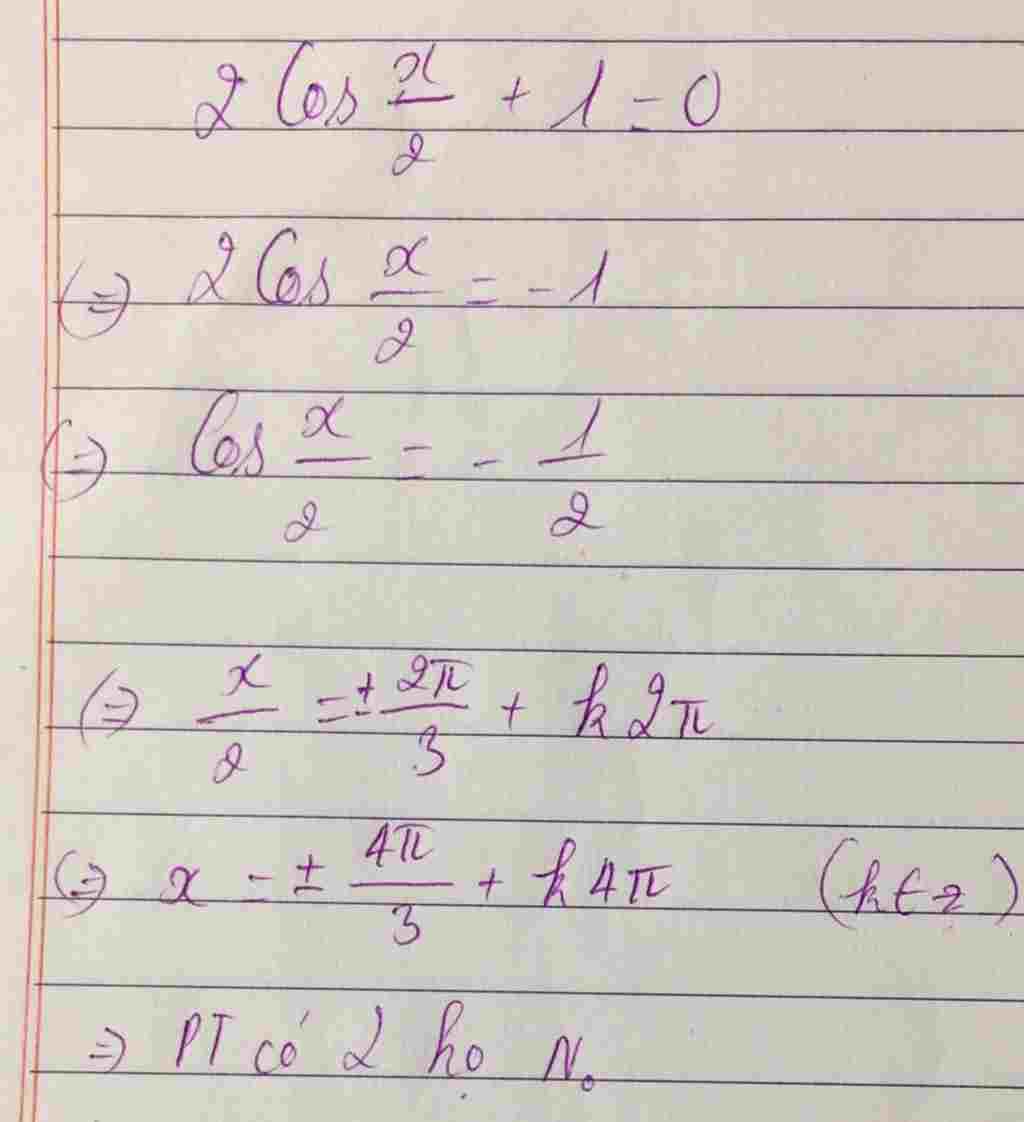 2 Cos x/2 + 1 = 0
(=) 2 Cos x/2 = -1
(=) Cos x/2 = - 1/2
(=) x/2 = ± 2π/3 + k2π
(=) x = ± 4π/3 + k4π (k ∈ z)
=) PT có 2 họ No